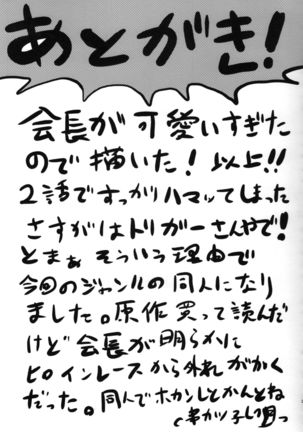 あとがき!
会長が可愛いすぎた
ので描いた!以上!!
2話ですっかりハマッてしまった
さすがはトリガーさんやで!
とまぁそういう理由で
今回のジャンルの同人になり
ました。原作買って読んだ
けど会長が明らかに
ヒロインレースから外れ
だった。同人でホカンしとかんとね